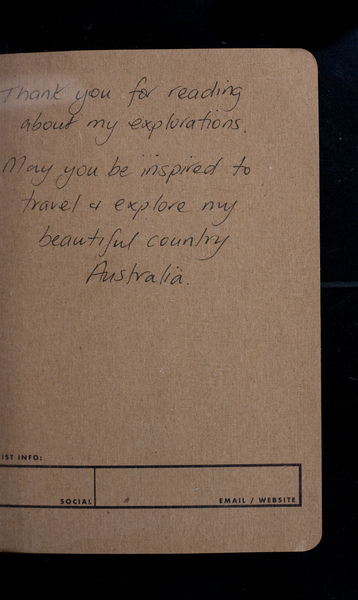 Thank you for reading
about my explorations.
May you be inspired to
travel & explore my
beautiful country
Australia.
IST INFO:
SOCIAL
EMAIL / WEBSITE